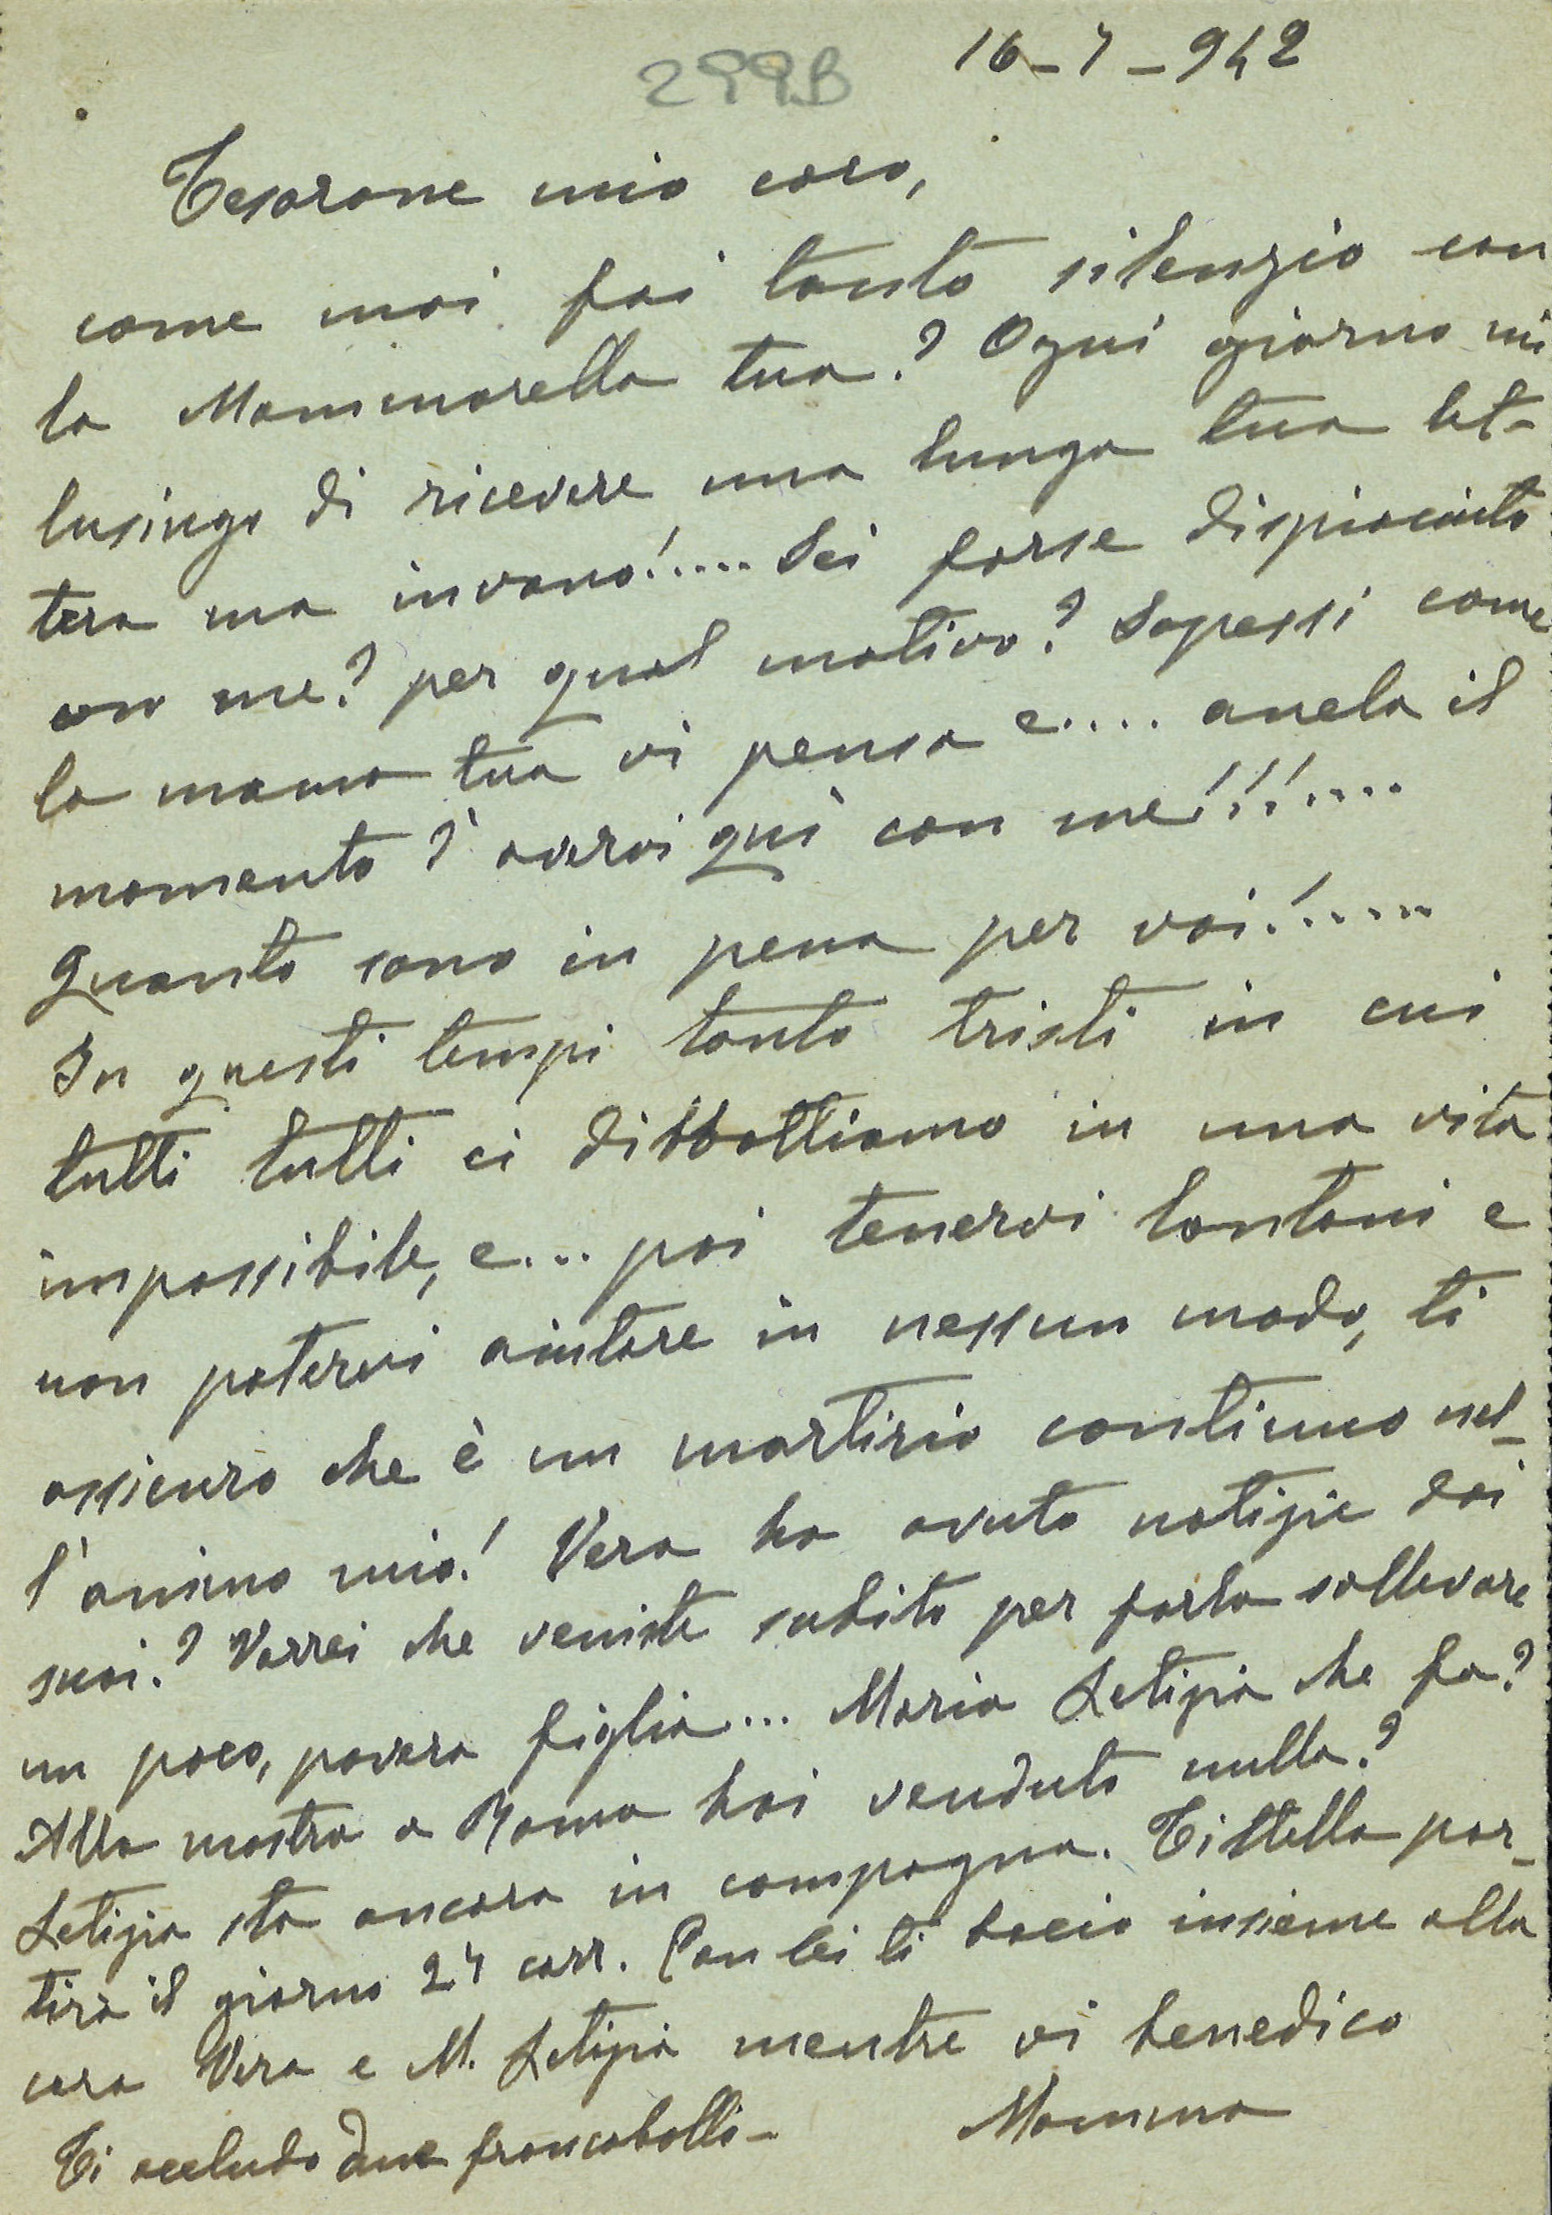 299B 16-7-942
Tesorone mio caro,
come mai fai tanto silenzio con
la Mammarella tua? Ogni giorno mi
lusingo di ricevere una lunga tua let-
tera ma invano!..... Sei forse dispiaciuto
con me? per qual motivo? Sapessi come
la mama tua vi pensa e.... anela il
momento d'avervi quì con me!!!....
Quanto sono in pena per voi!.....
In questi tempi tanto tristi in cui
tutti tutti ci dibbattiamo in una vita
impossibile, e... poi tenervi lontani e
non potervi aiutare in nessun modo, ti
assicuro che è un martirio continuo nel-
l'animo mio! Vera ha avuto notizie dai
suoi? Vorrei che veniste subito per farla sollevare
un poco, povera figlia... Maria Letizia che fa?
Alla mostra a Roma hai venduto nulla?
Letizia sta ancora in campagna. Titella par-
tirà il giorno 27 corr. Con lei ti bacio insieme alla
cara Vera e M. Letizia mentre vi benedico
Mamma
Ti accludo due francobolli-